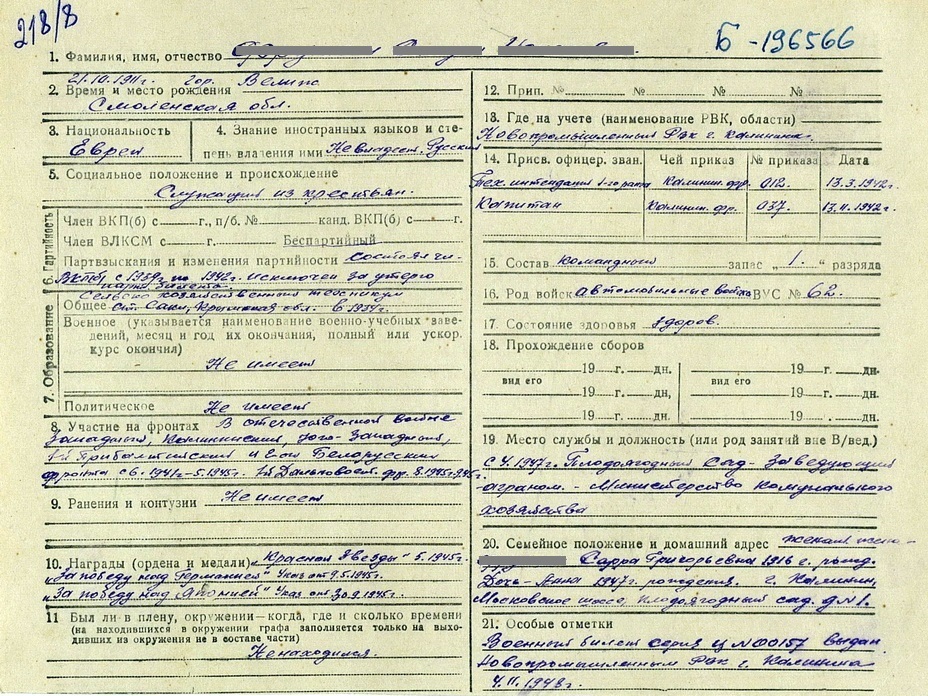 218/8
Б-196566
1. Фамилия, имя, отчество
21.10.1911г. гор. Велиж
2. Время и место рождения
Смоленская обл.
3. Национальность
Еврей
4. Знание иностранных языков и сте-
пень владения ими Не владеет. Русский
5. Социальное положение и происхождение
Служащий из крестьян.
6. Партийность
Член ВКП(б) с г., п/б. № канд. ВКП(б) с г.
Член ВЛКСМ с г. Беспартийный
Партвзыскания и изменения партийности Состоял чл.
ВКП(б) с 1939г. по 1942г. исключен за утерю
парт. билета.
7. Образование
Сельско хозяйственный техникум
Общее ст. Саки, Крымской обл. в 1931г.
Военное (указывается наименование военно-учебных заве-
дений, месяц и год их окончания, полный или ускор.
курс окончил)
Не имеет
Политическое Не имеет
8. Участие на фронтах В отечественной войне
Западный, Калининский, Юго-Западный,
1й Прибалтийский и 2ой Белорусский
фронта с 6.1941г-5.1945г. 1й Дальневост. фр. 8.1945-9.45г.
9. Ранения и контузии Не имеет
10. Награды (ордена и медали) „Красная Звезды" 5.1945г.
„За победу над Германией" Указ от 9.5.1945г.
„За победу над Японией" Указ от 30.9.1945г.
11 Был ли в плену, окружении—когда, где и сколько времени
(на находившихся в окружении графа заполняется только на выхо-
дивших из окружения не в составе части)
Не находился.
12. Прип. № № № №
13. Где на учете (наименование РВК, области)
Новопромышленный Рвк г. Калинина.
14. Присв. офицер. зван. Чей приказ № приказа Дата
Тех. интендант 1-го ранга Калинин. фр. 012. 13.3.1942г.
Капитан Калинин. фр. 037. 13.11.1942г.
15. Состав командного запас „1." разряда
16. Род войск автомобильные войска ВУС № 62.
17. Состояние здоровья здоров.
18. Прохождение сборов
19 г. дн. 19 г. дн.
вид его вид его
19 г. дн. 19 г. дн.
19 г. дн. 19 г. дн.
19. Место службы и должность (или род занятий вне В/вед.)
с 4.1947г. Плодоягодный Сад-Заведующий
-аграном. - Министерство Комунального
хозяйства
20. Семейное положение и домашний адрес женат жена-
Сарра Григорьевна 1916 г. рожд.
Дочь-Анна 1947г. рождения. г. Калинин,
Московское шоссе, плодоягодный сад. д N1.
21. Особые отметки
Военный билет серия Ц N 00157 выдан
Новопромышленным Рвк г. Калинина
4.11.1948г.